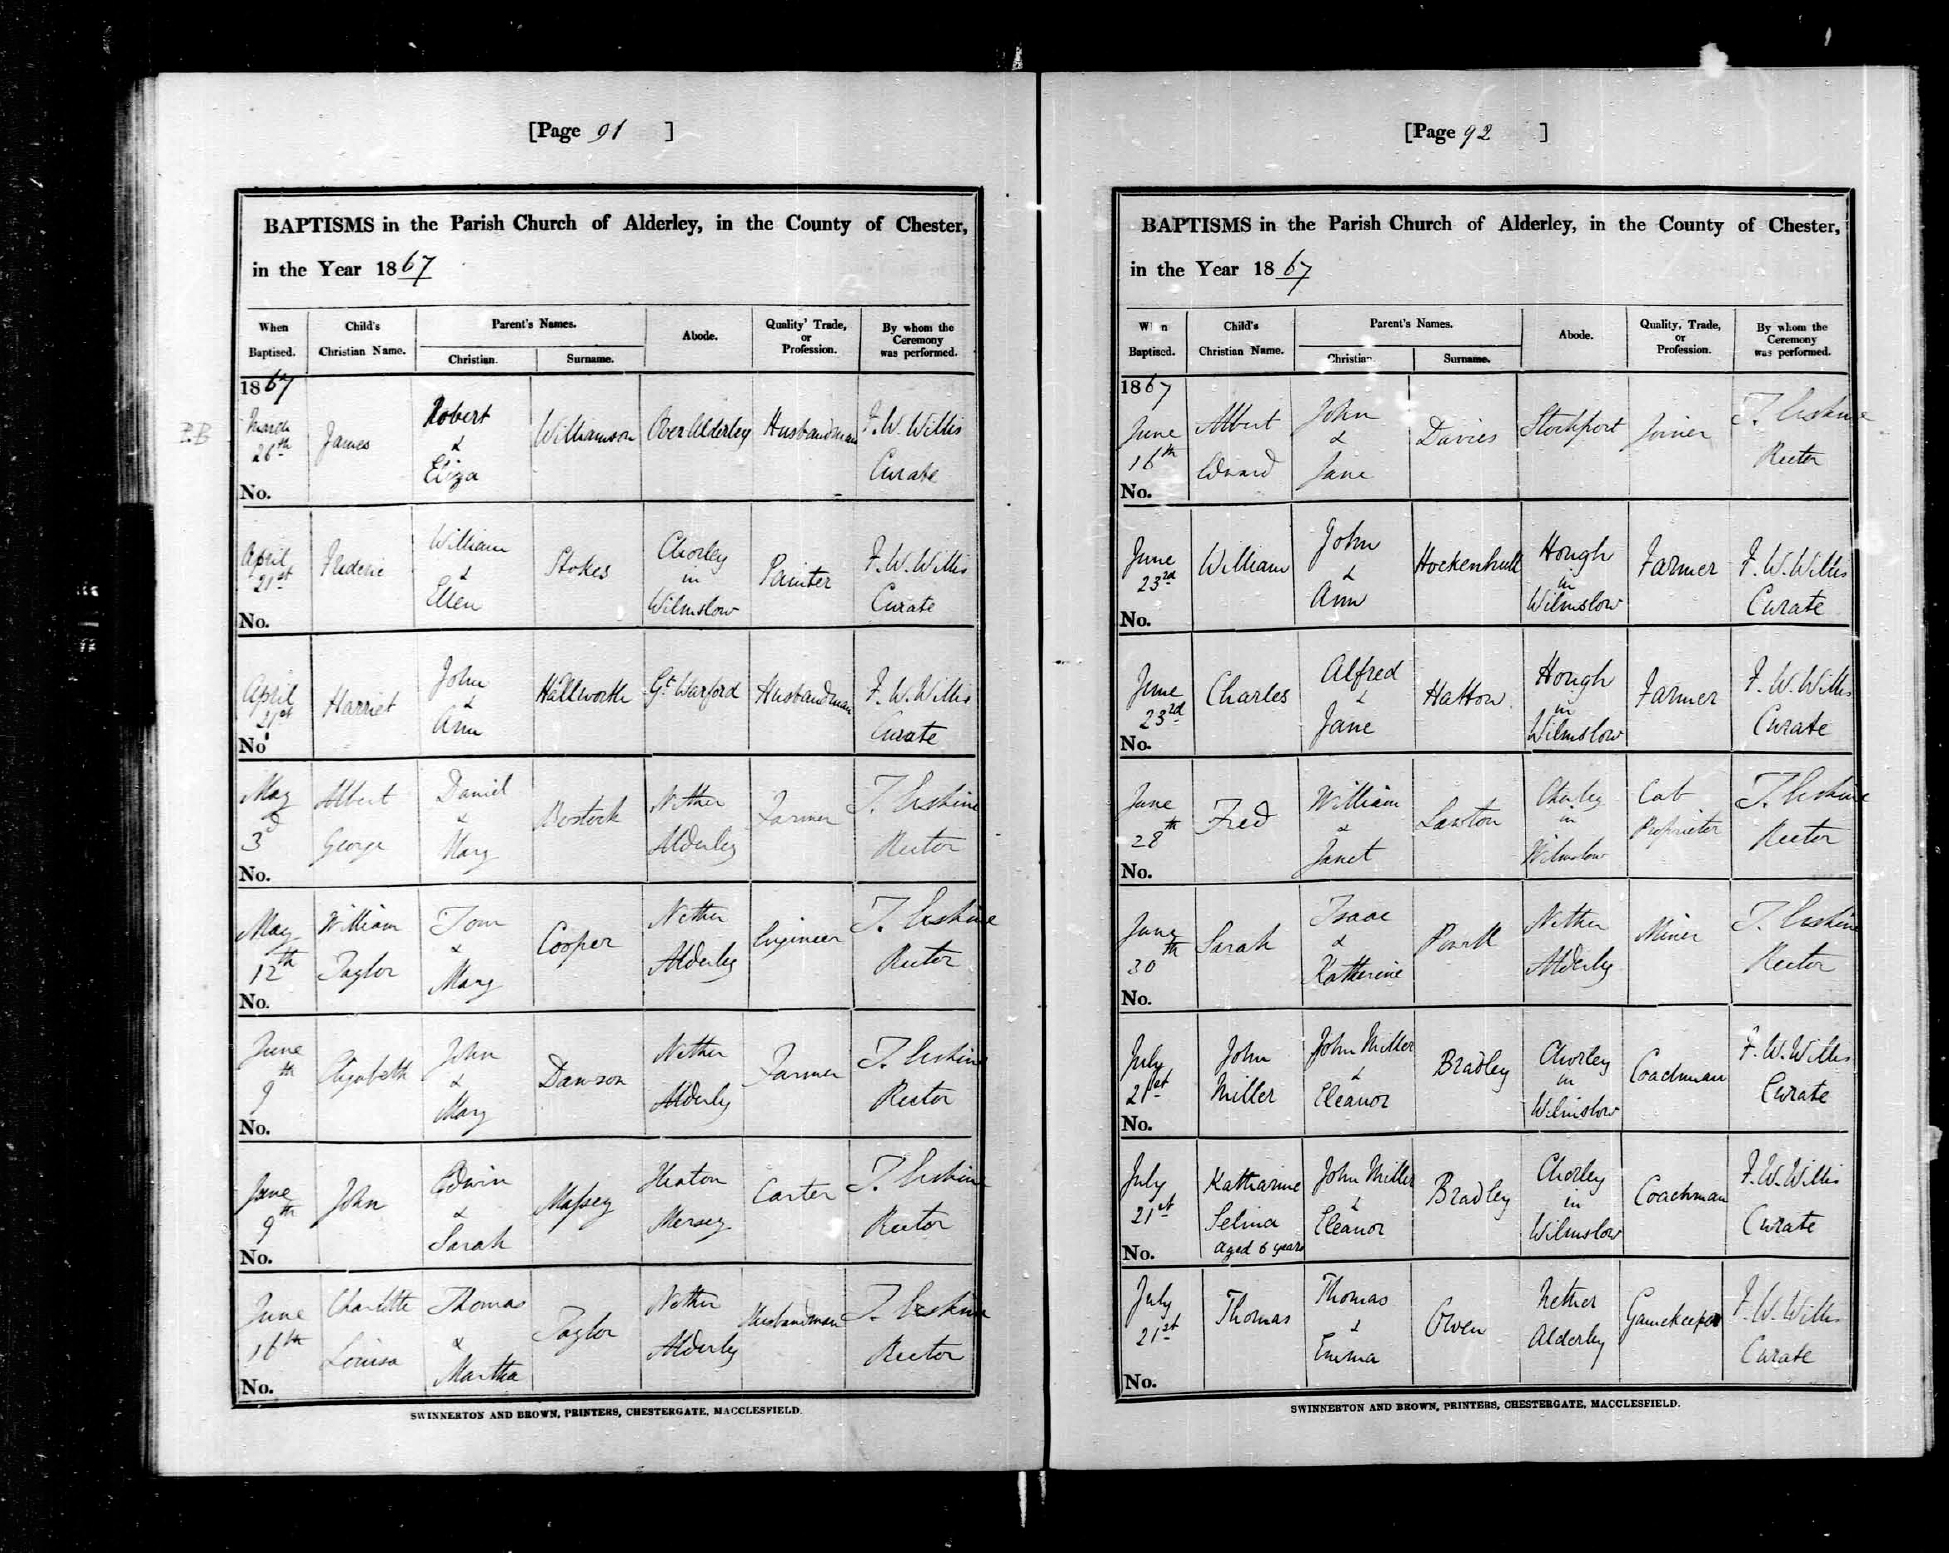 [Page 91 ]
BAPTISMS in the Parish Church of Alderley, in the County of Chester,
in the Year 1867
When Baptised.
Child's Christian Name.
Parent's Names.
Christian.
Surname.
Abode.
Quality' Trade, or Profession.
By whom the Ceremony was performed.
1867
March 26th
James
Robert & Eliza
Williamson
Over Alderley
Husbandman
F. W. Willis Curate
No.
April 21st
Frederic
William & Ellen
Stokes
Chorley in Wilmslow
Painter
F. W. Willis Curate
No.
April 21st
Harriet
John & Ann
Hallworth
Gt. Warford
Husbandman
F. W. Willis Curate
No.
May 3d
Albert George
Daniel & Mary
Bostock
Nether Alderley
Farmer
T. Erskine Rector
No.
May 12th
William Taylor
Tom & Mary
Cooper
Nether Alderley
Engineer
T. Erskine Rector
No.
June 9th
Elizabeth
John & Mary
Dawson
Nether Alderley
Farmer
T. Erskine Rector
No.
June 9th
John
Edwin & Sarah
Massey
Heaton Mersey
Carter
T. Erskine Rector
No.
June 16th
Charlotte Louisa
Thomas & Martha
Taylor
Nether Alderley
Husbandman
T. Erskine Rector
No.
SWINNERTON AND BROWN, PRINTERS, CHESTERGATE, MACCLESFIELD.
[Page 92 ]
BAPTISMS in the Parish Church of Alderley, in the County of Chester,
in the Year 1867
When Baptised.
Child's Christian Name.
Parent's Names.
Christian.
Surname.
Abode.
Quality, Trade, or Profession.
By whom the Ceremony was performed.
1867
June 16th
Albert Edward
John & Jane
Davies
Stockport
Joiner
T. Erskine Rector
No.
June 23rd
William
John & Ann
Hockenhull
Hough in Wilmslow
Farmer
F. W. Willis Curate
No.
June 23rd
Charles
Alfred & Jane
Hatton
Hough in Wilmslow
Farmer
F. W. Willis Curate
No.
June 28th
Fred
William & Janet
Chorley in Wilmslow
Cab Proprietor
T. Erskine Rector
No.
June 30th
Sarah
Isaac & Katherine
Powell
Nether Alderley
Miner
T. Erskine Rector
No.
July 21st
John Miller
John Miller & Eleanor
Bradley
Chorley in Wilmslow
Coachman
F. W. Willis Curate
No.
July 21st
Katharine Selina aged 6 years
John Miller & Eleanor
Bradley
Chorley in Wilmslow
Coachman
F. W. Willis Curate
No.
July 21st
Thomas
Thomas & Emma
Owen
Nether Alderley
Gamekeeper
F. W. Willis Curate
No.
SWINNERTON AND BROWN, PRINTERS, CHESTERGATE, MACCLESFIELD.